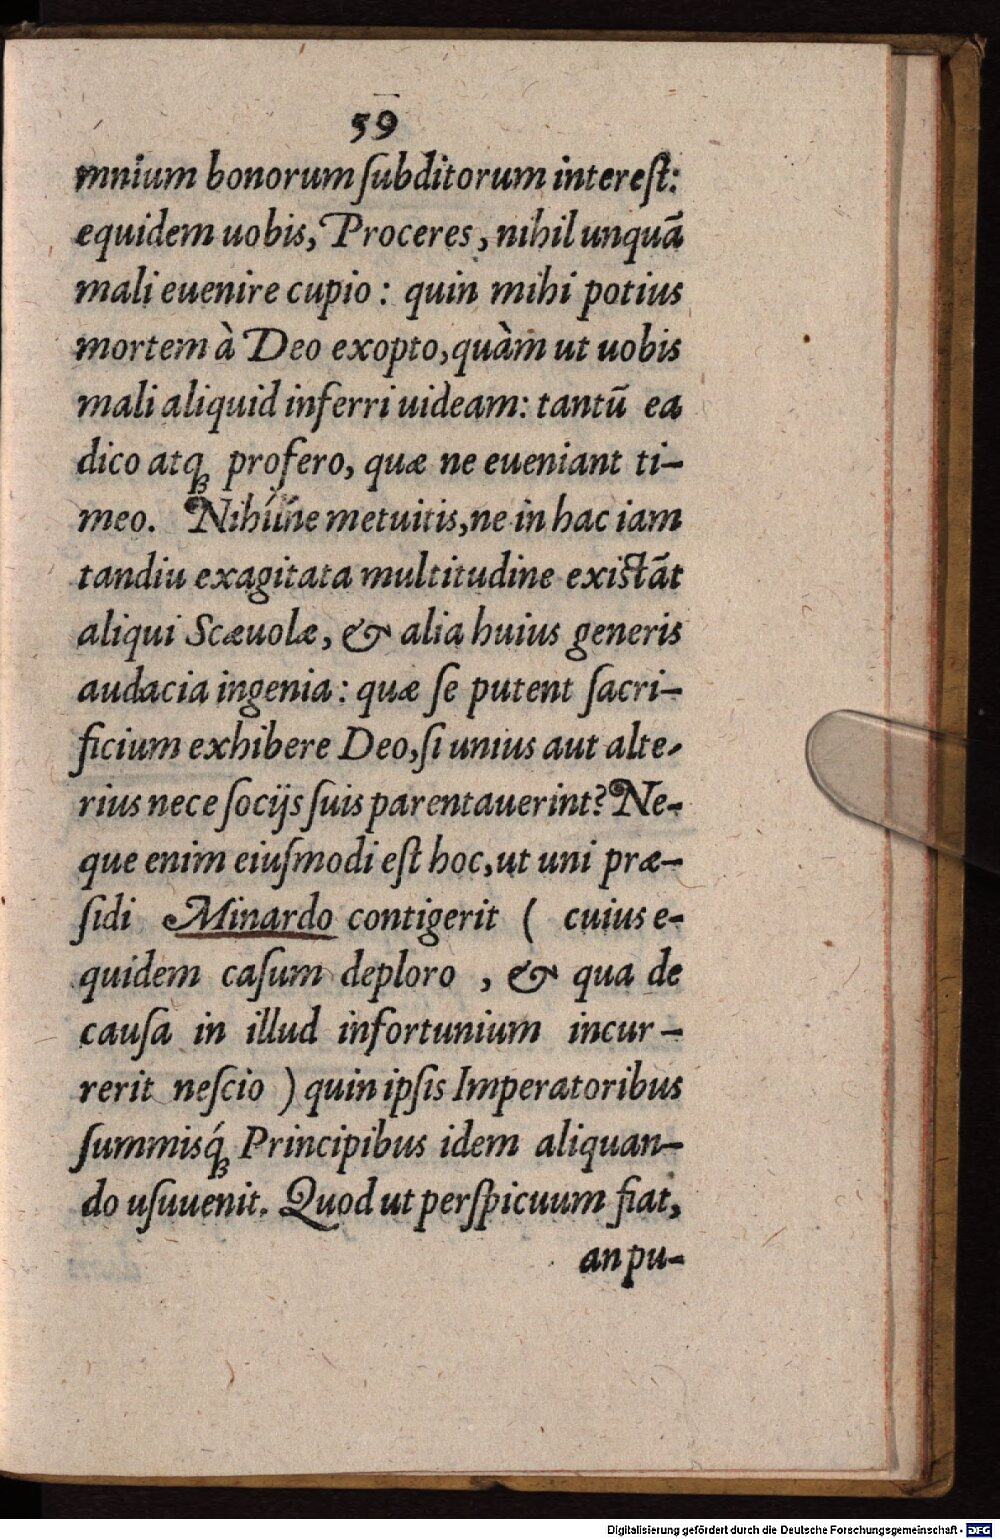 59
mnium bonorum ſubditorum intereſt:
equidem uobis, Proceres, nihil unquā
mali euenire cupio: quin mihi potius
mortem à Deo exopto, quàm ut uobis
mali aliquid inferri uideam: tantū ea
dico atq́ꝫ profero, quæ ne eueniant ti-
meo. Nihilne metuitis, ne in hac iam
tandiu exagitata multitudine existāt
aliqui Scæuolæ, & alia huius generis
audacia ingenia: quæ ſe putent ſacri-
ficium exhibere Deo, ſi unius aut alte-
rius nece ſocijs ſuis parentauerint? Ne-
que enim eiuſmodi eſt hoc, ut uni præ-
ſidi Minardo contigerit ( cuius e-
quidem caſum deploro , & qua de
cauſa in illud infortunium incur-
rerit neſcio ) quin ipſis Imperatoribus
ſummisq́ꝫ Principibus idem aliquan-
do uſuuenit. Quod ut perſpicuum fiat,
an pu-
Digitalisierung gefördert durch die Deutsche Forschungsgemeinschaft - DFG